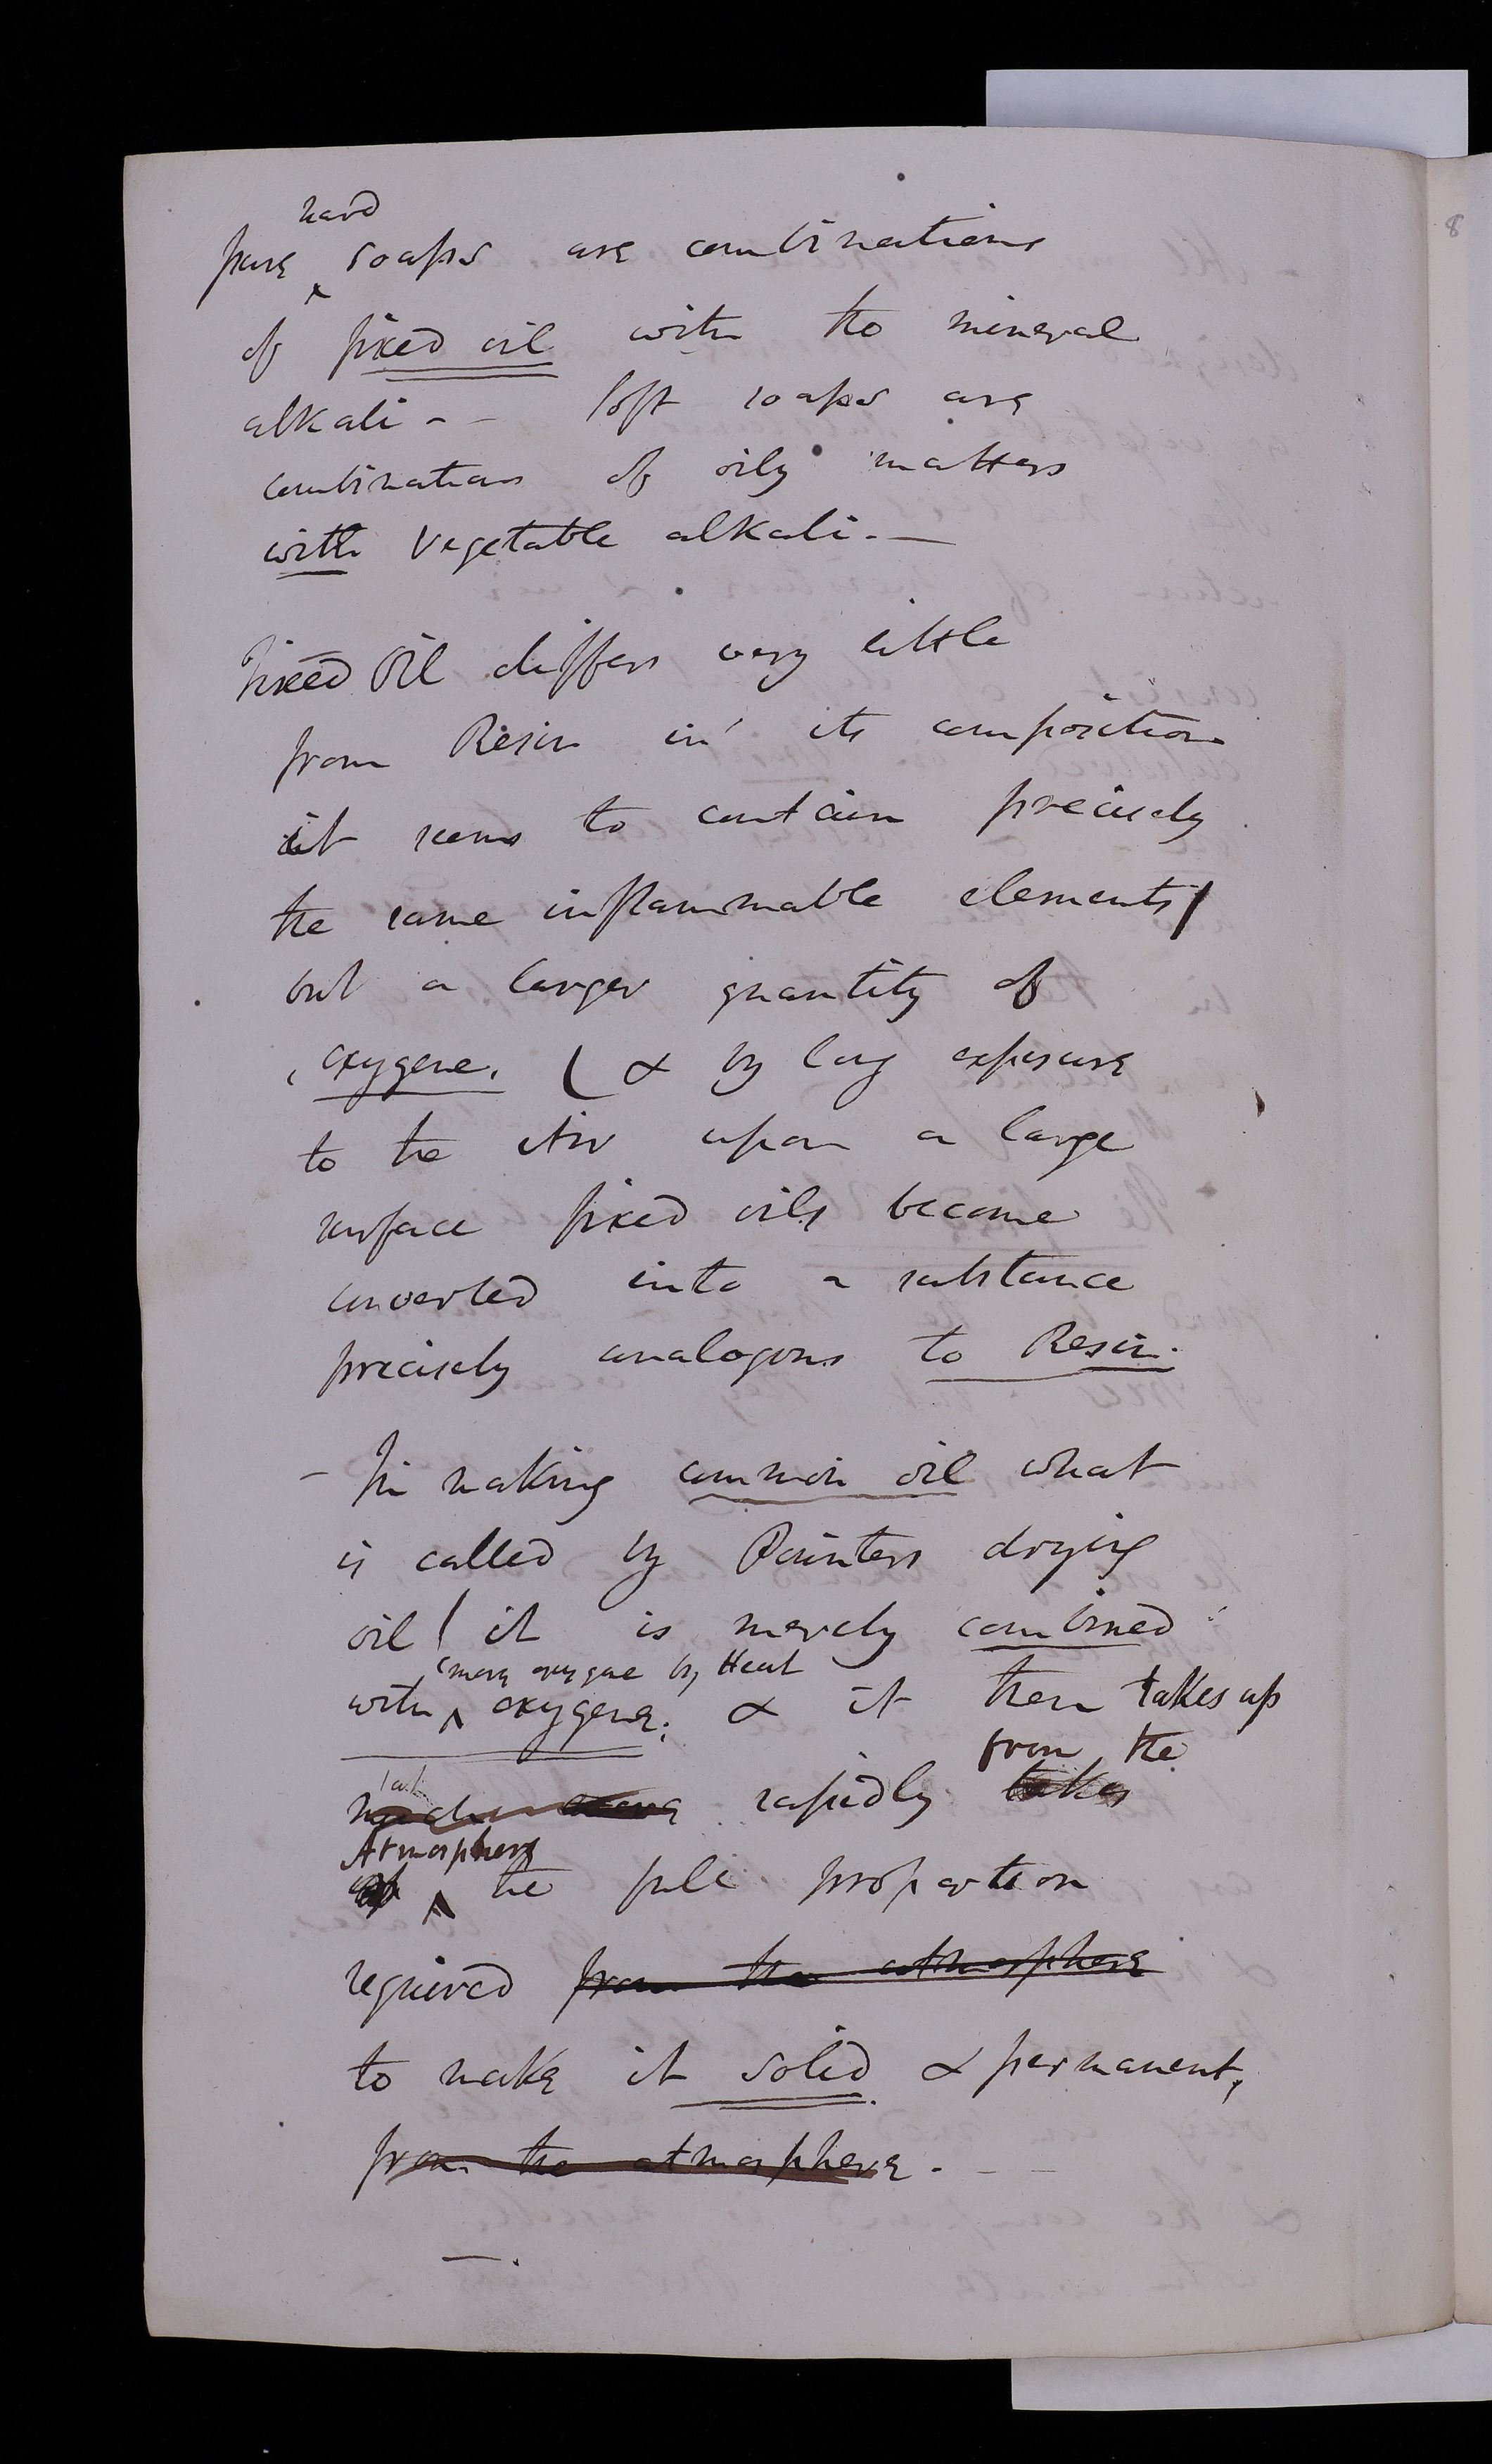 hard
pure soaps are combinations
of fixed oil with the mineral
alkali - - soft soaps are
combinations of oily matters
with vegetable alkali. —
Fixed Oil differs very little
from Resin in its composition
it seems to contain precisely
the same inflammable elements
but a larger quantity of
oxygene. ( & by long exposure
to the Air upon a large
surface fixed oils become
converted into a substance
precisely analogous to Resin.
- In making common oil what
is called by Painters drying
oil ( it is merely combined
more oxygene by Heat
with oxygene; & it then takes up
from the
much more rapidly takes
Atmosphere
the full proportion
required from the atmosphere
to make it solid & permanent,
from the atmosphere. - -
8